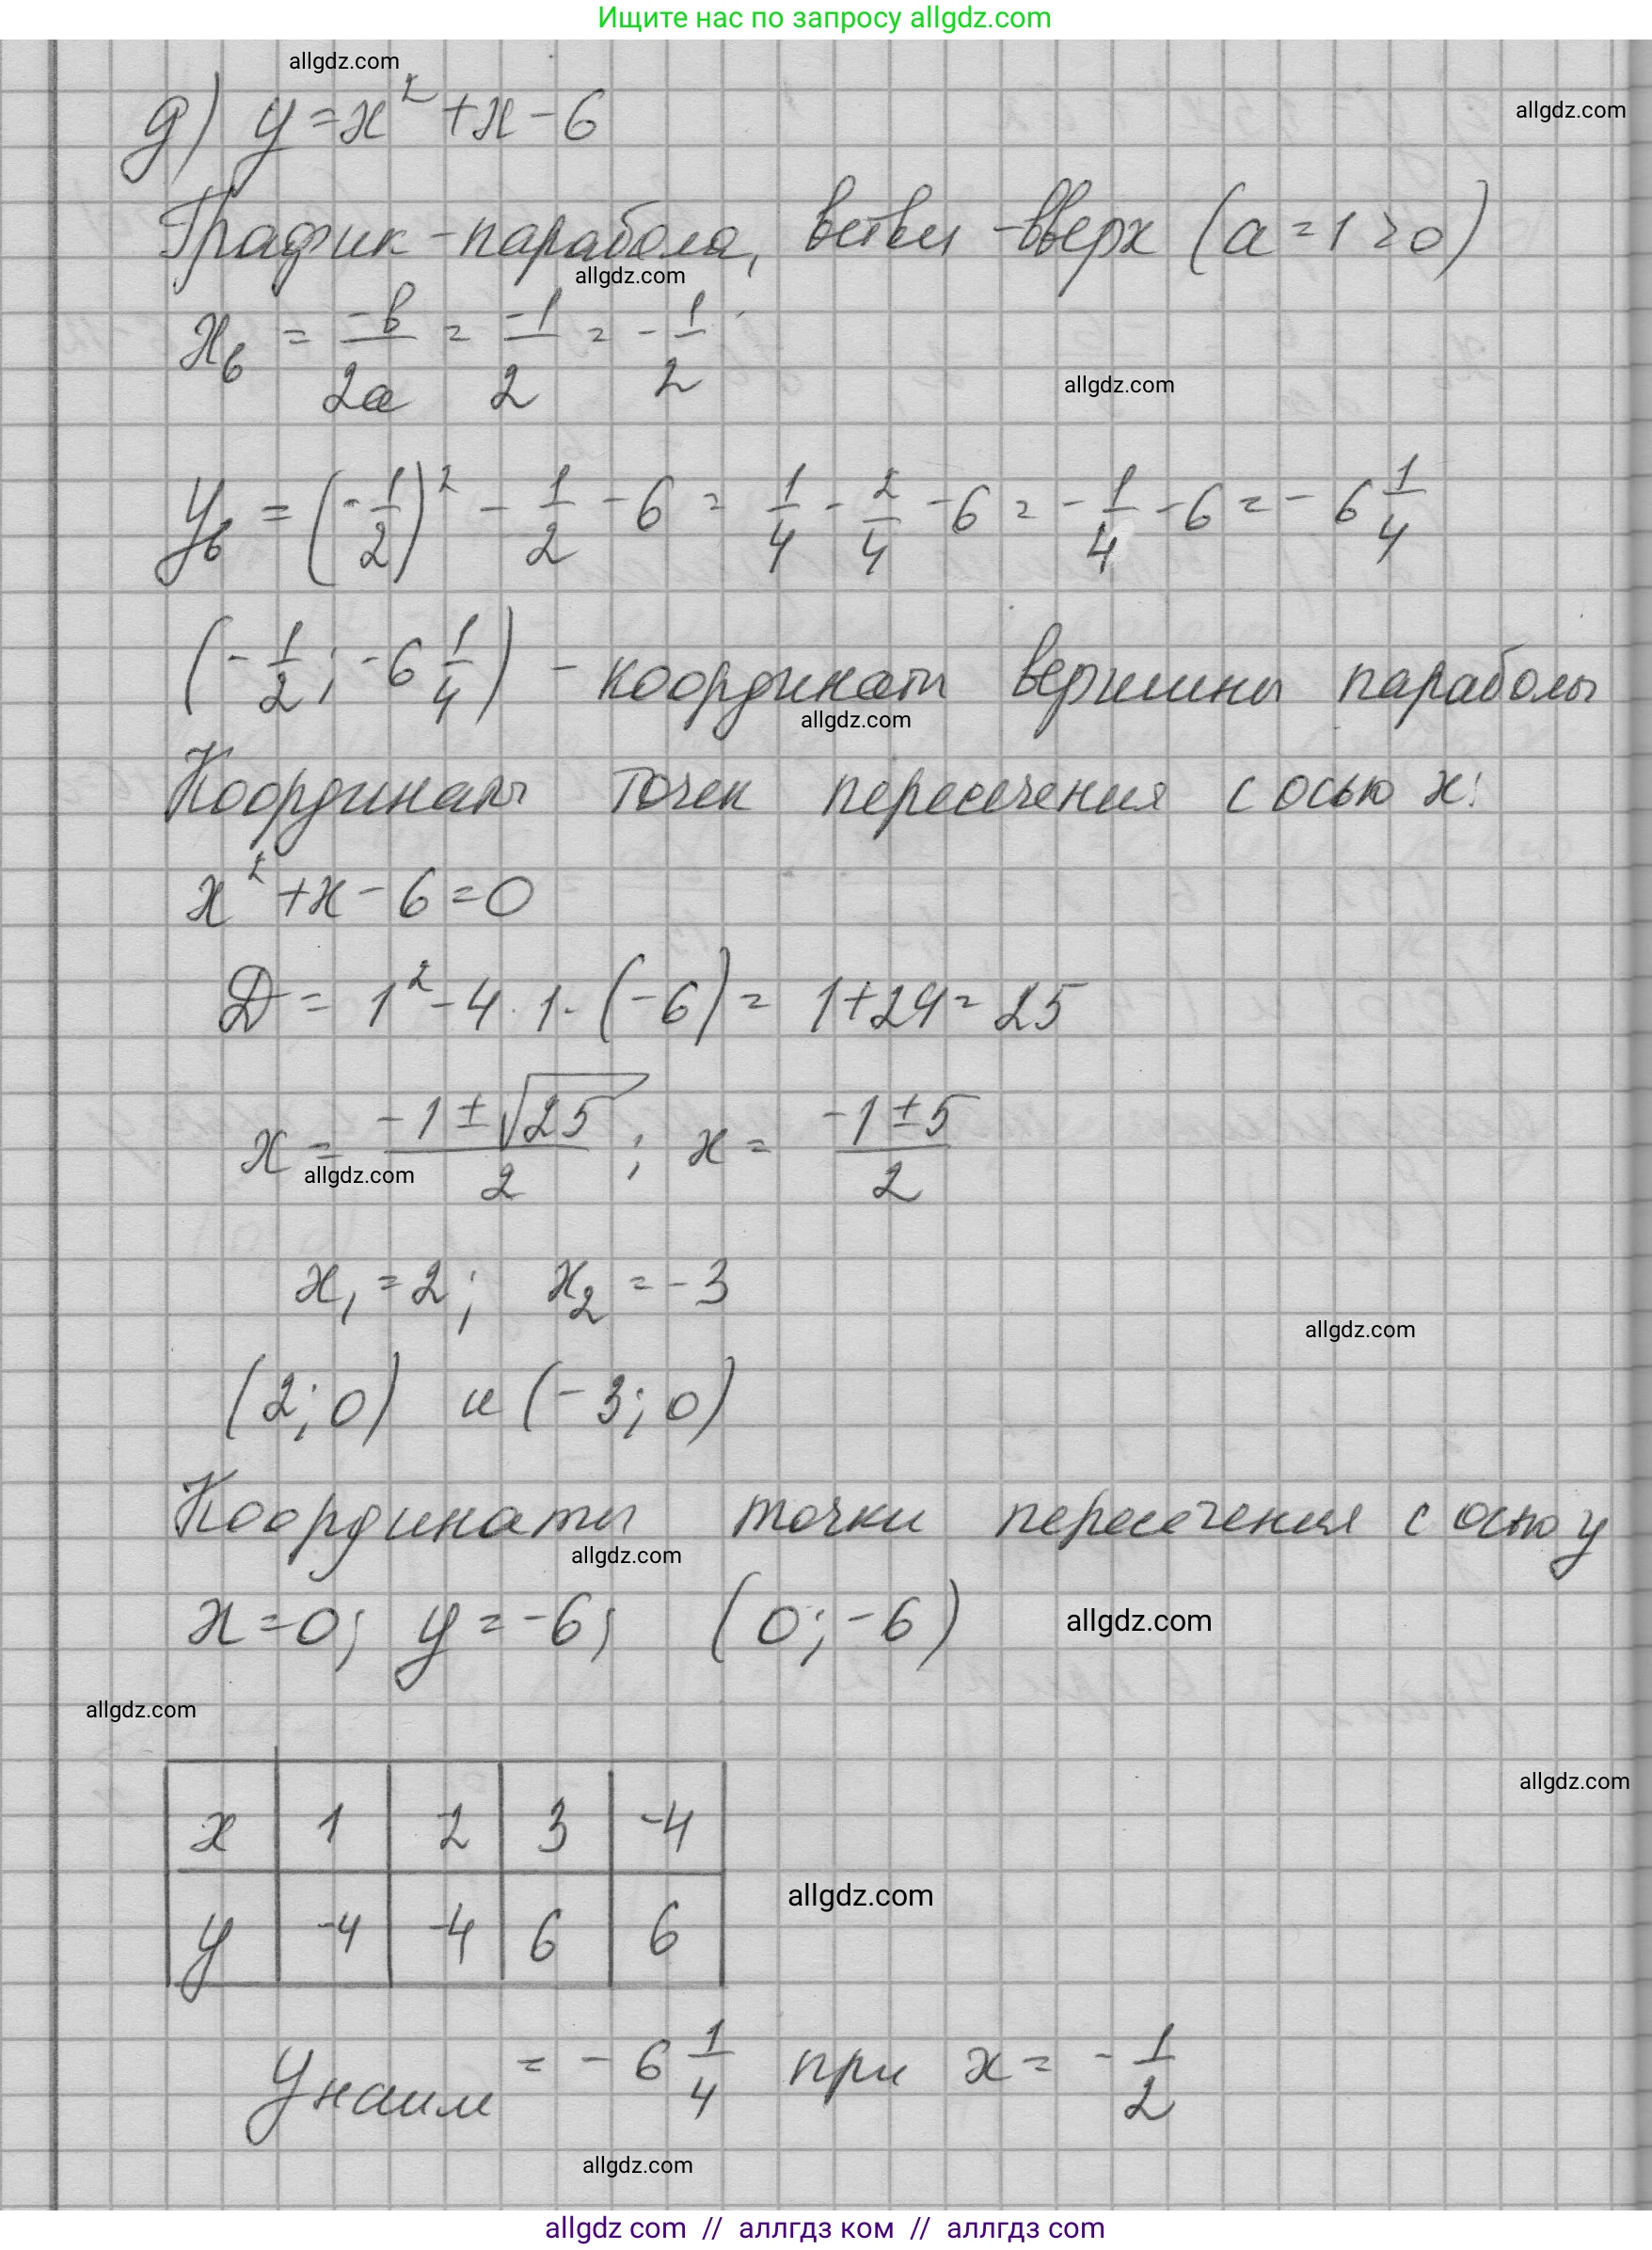 Ищите нас по запросу allgdz.com
allgdz.com
д) y = x² + x - 6
allgdz.com
График - парабола, ветви - вверх (a = 1 > 0)
allgdz.com
xв = -b/2a = -1/2 = - 1/2
allgdz.com
yв = (-1/2)² - 1/2 - 6 = 1/4 - 2/4 - 6 = - 1/4 - 6 = - 6 1/4
(- 1/2; -6 1/4) - координаты вершины параболы
allgdz.com
Координаты точек пересечения с осью x:
x² + x - 6 = 0
D = 1² - 4 · 1 · (-6) = 1 + 24 = 25
x = (-1 ± √25)/2 ; x = (-1 ± 5)/2
allgdz.com
x₁ = 2; x₂ = -3
allgdz.com
(2; 0) и (-3; 0)
Координаты точки пересечения с осью y
allgdz.com
x = 0; y = -6; (0; -6)
allgdz.com
allgdz.com
allgdz.com
x 1 -2 3 -4
allgdz.com
y -4 -4 6 6
yнаим = - 6 1/4 при x = - 1/2
allgdz.com
allgdz com // аллгдз ком // аллгдз com